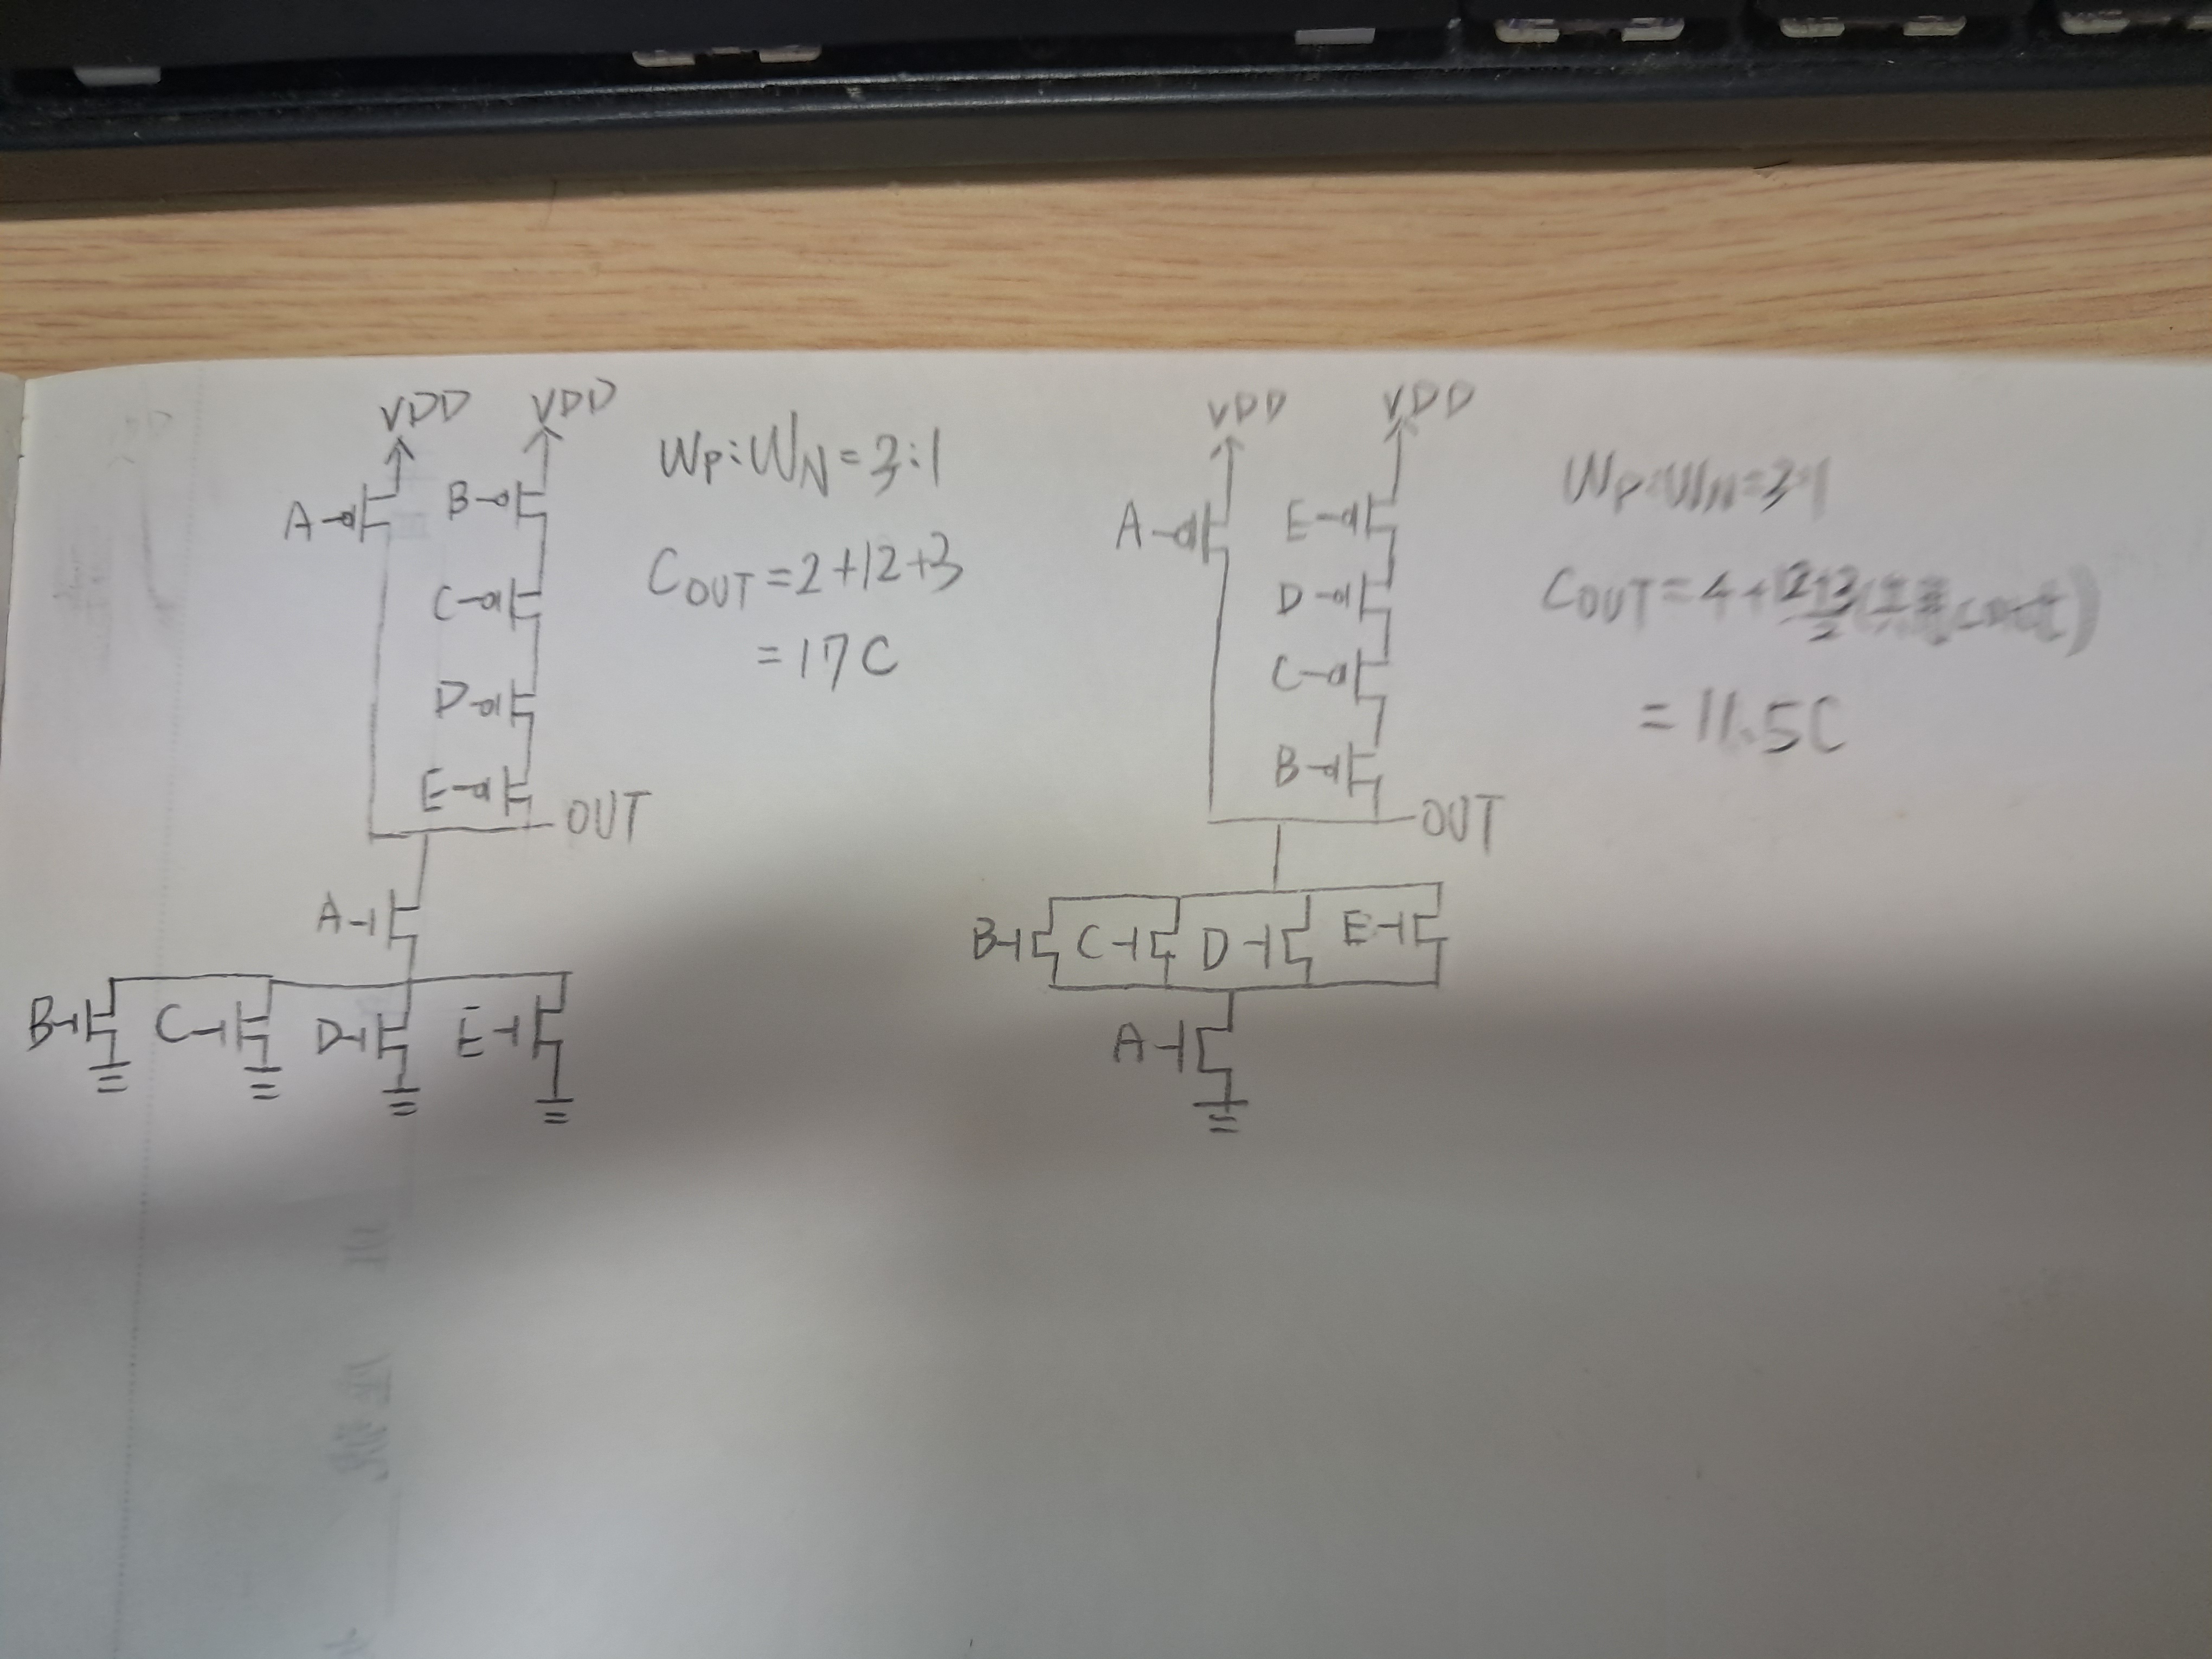 VDD VDD
A B
C
D
E OUT
A
B C D E
Wp:WN=3:1
COUT=2+12+3
=17C
VDD VDD
A E
D
C
B OUT
B C D E
A
Wp:WN=3:1
COUT=4+
=11.5C